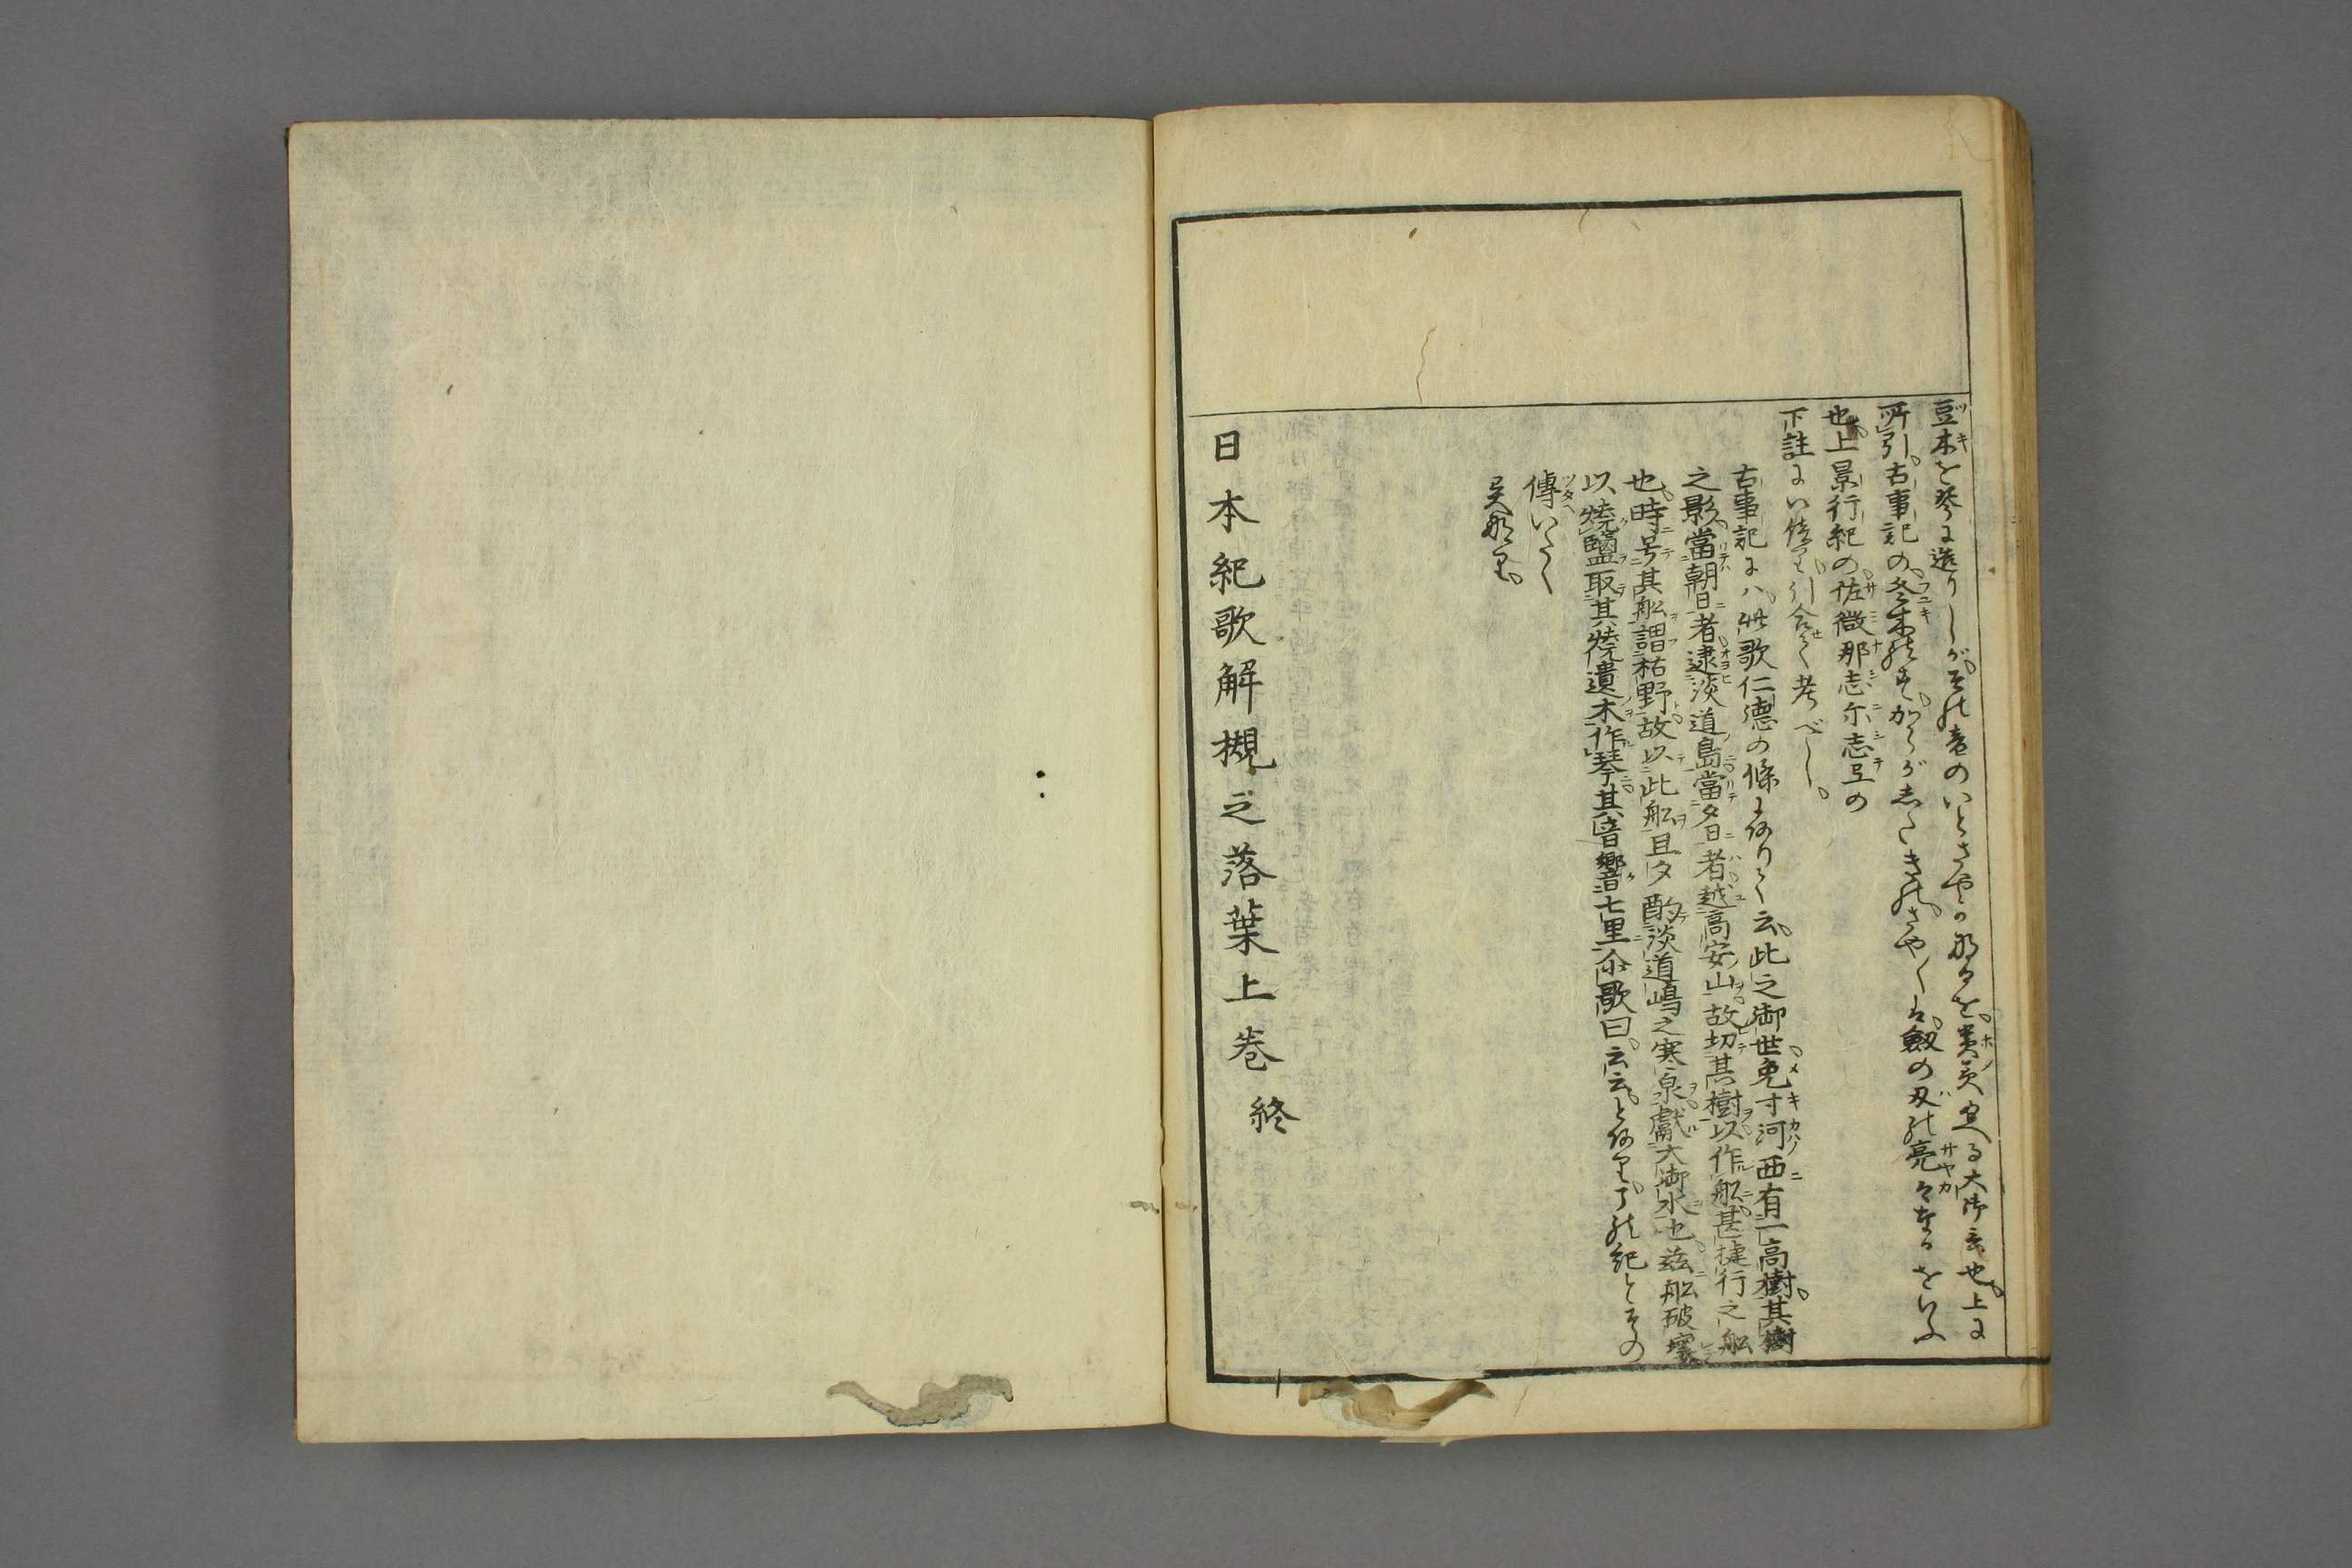 豆木を琴に造りしがその音のいとさやかなるを貴美定る大御言也上に
所引古事記の冬木のすからがしたきのさや〱は劔の刄の亮々なるをいふ
也上景行紀の佐微那志尓志弖の
下註にい傍引合せて考べし
古事記には此歌仁德の條にありて云此之御世免寸河西有一高樹其樹
之影當朝日者逮淡道島當夕日者越高安山故切其樹以作舩甚捷行之舩
也時号其舩謂枯野故以此舩旦夕酌淡道嶋之寒泉獻大御水也茲舩破壞
以燒鹽取其燒遺木作琴其音響七里尒歌曰云云とありこの紀とその
傳いたく
異なり
日本紀歌解槻之落葉上巻終